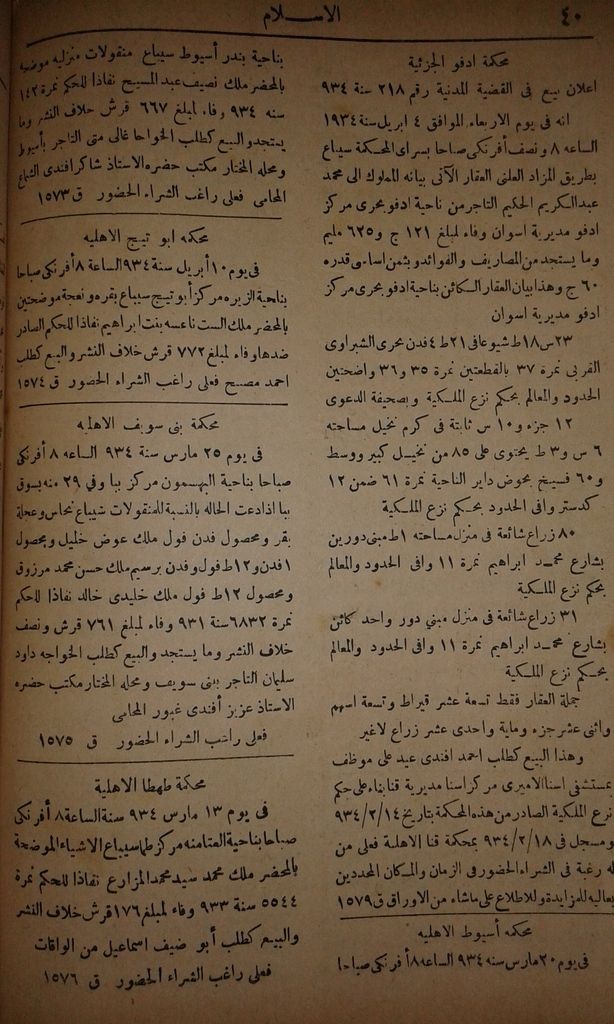 ٤٠
الاسلام
محكمة ادفو الجزئية
اعلان بيع فى القضية المدنية رقم ٢١٨ سنة ٩٣٤
انه فى يوم الاربعاء الموافق ٤ ابريل سنة ١٩٣٤
الساعه ٨ ونصف أفرنكى صباحا بسراى المحكمة سيباع
بطريق المزاد العلنى العقار الآتى بيانه المملوك الى محمد
عبد الكريم الحكيم التاجر من ناحية ادفو بحرى مركز
ادفو مديرية اسوان وفاء لمبلغ ١٢١ ج و ٦٢٥ مليم
وما يستجد من المصاريف والفوائد وبثمن اساسى قدره
٦٠ ج وهذا بيان العقار السكائن بناحية ادفو بحرى مركز
ادفو مديرية اسوان
٢٣ س ١٨ ط شيوعا فى ٢١ ط ٤ فدن بحرى الشبراوى
القربى نمرة ٣٧ بالقطعتين نمرة ٣٥ و ٣٦ واضحتين
الحدود والمعالم بحكم نزع الملكية وبصحيفة الدعوى
١٢ جزء و ١٠ س ثابتة فى كرم نخيل مساحته
٦ س و ٣ ط يحتوى على ٨٥ من نخيل كبير ووسط
و ٦٠ فسيخ بحوض داير الناحية نمرة ٦١ ضمن ١٢
كدستر وافى الحدود بحكم نزع الملكية
٨٠ زراع شائعة فى منزل مساحته ١ ط مبنى دورين
بشارع محمد ابراهيم نمرة ١١ وافى الحدود والمعالم
بحكم نزع الملكية
٣١ زراع شائعة فى منزل مبنى دور واحد كائن
بشارع محمد ابراهيم نمرة ١١ وافى الحدود والمعالم
بحكم نزع الملكية
جملة العقار فقط تسعة عشر قيراط وتسعة اسهم
واثنى عشر جزء وماية واحدى عشر زراع لاغير
وهذا البيع كطلب احمد افندى عيد على موظف
بمستشفى اسنا الاميرى مركز اسنا مديرية قنا بناء على حكم
نزع الملكية الصادر من هذه المحكمة بتاريخ ٩٣٤/٢/١٤
ومسجل فى ٩٣٤/٢/١٨ بمحكمة قنا الاهلية فعلى من
له رغبة فى الشراء الحضور فى الزمان والمكان المحددين
بعاليه للمزايدة وللاطلاع على ماشاء من الاوراق ق ١٥٧٩
محكمه أسيوط الاهليه
فى يوم ٢٠ مارس سنه ٩٣٤ الساعه ٨ أفرنكى صباحا
بناحية بندر أسيوط سيباع منقولات منزليه موضحه
بالمحضر ملك نصيف عبد المسيح نفاذا للحكم نمرة ١٤٢
سنه ٩٣٤ وفاء لمبلغ ٦٦٧ قرش خلاف النشر وما
يستجد والبيع كطلب الخواجا غالى متى التاجر بأسيوط
ومحله المختار مكتب حضره الاستاذ شاكر افندى
المحامى فعلى راغب الشراء الحضور ق ١٥٧٣
محكمه ابو تيج الاهليه
فى يوم ١٠ أبريل سنة ٩٣٤ الساعة ٨ أفرنكى صباحا
بناحية الزيره مركز أبو تيج سيباع بقره ونعجة موضحتين
بالمحضر ملك الست ناعسه بنت ابراهيم نفاذا للحكم الصادر
ضدها وفاء لمبلغ ٧٧٢ قرش خلاف النشر والبيع كطلب
احمد مصبح فعلى راغب الشراء الحضور ق ١٥٧٤
محكمة بنى سويف الاهليه
فى يوم ٢٥ مارس سنة ٩٣٤ الساعه ٨ أفرنكى
صباحا بناحية البهسمون مركز ببا وفى ٢٩ منه بسوق
ببا اذا دعت الحاله بالنسبة للمنقولات سيباع نحاس وعجلة
بقر ومحصول فدن فول ملك عوض خليل ومحصول
١ فدن و ١٢ ط فول وفدن برسيم ملك حسن محمد مرزوق
ومحصول ١٢ ط فول ملك خليدى خالد نفاذا للحكم
نمرة ٦٨٣٢ سنة ٩٣١ وفاء لمبلغ ٧٦١ قرش ونصف
خلاف النشر وما يستجد والبيع كطلب الخواجه داود
سليمان التاجر ببنى سويف ومحله المختار مكتب حضره
الاستاذ عزيز أفندى غبور المحامى
فعلى راغب الشراء الحضور ق ١٥٧٥
محكمة طهطا الاهلية
فى يوم ١٣ مارس ٩٣٤ سنة الساعة ٨ أفرنكى
صباحا بناحية العتامنه مركز طما سيباع الاشياء الموضحة
بالمحضر ملك محمد سيد محمد المزارع نفاذا للحكم نمرة
٥٥٤٤ سنة ٩٣٣ وفاء لمبلغ ١٧٦ قرش خلاف النشر
والبيع كطلب أبو ضيف اسماعيل من الواقات
فعلى راغب الشراء الحضور ق ١٥٧٦